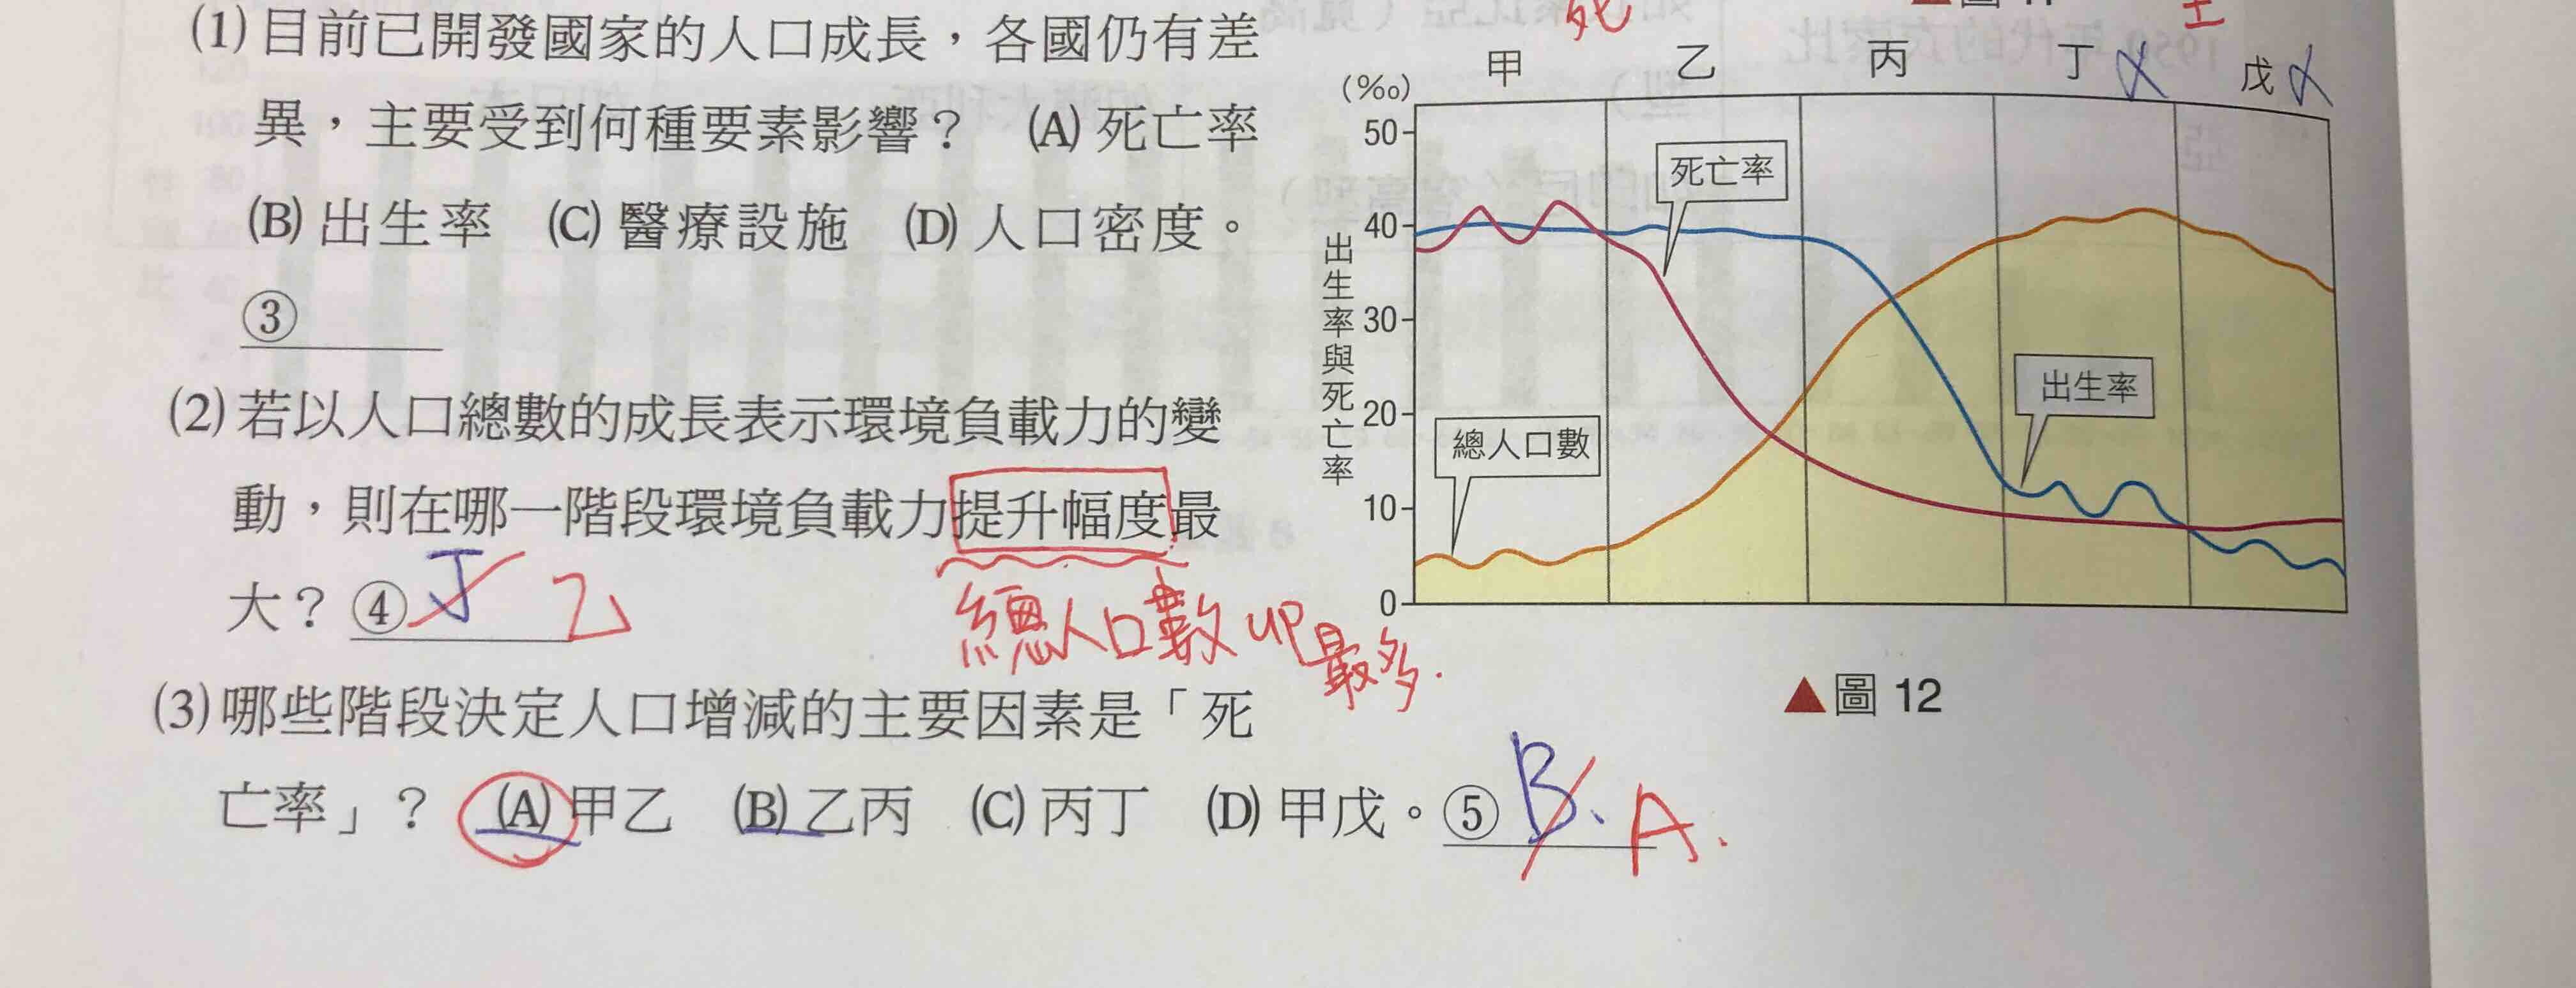 (1)目前已開發國家的人口成長，各國仍有差
異，主要受到何種要素影響？ (A)死亡率
(B)出生率 (C)醫療設施 (D)人口密度。
③
(2)若以人口總數的成長表示環境負載力的變
動，則在哪一階段環境負載力提升幅度最
大？④丁 乙
總人口數up最多.
(3)哪些階段決定人口增減的主要因素是「死
亡率」？ (A)甲乙 (B)乙丙 (C)丙丁 (D)甲戊。⑤B、A.
死
甲 乙 丙 丁 戊
(‰)
50
40
30
20
10
0
出生率與死亡率
死亡率
出生率
總人口數
▲圖 12